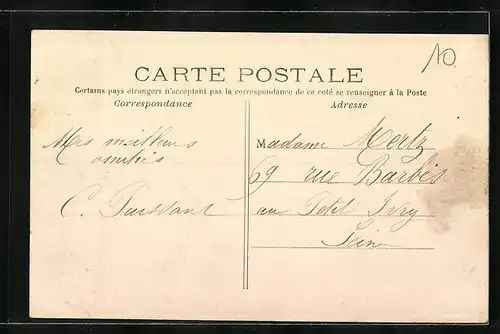 10
CARTE POSTALE
Certains pays étrangers n'acceptant pas la correspondance de ce coté se renseigner à la Poste
Correspondance
Adresse
Mes meilleurs
amitiés
C.
Madame Mertz
69 rue Barbès
au Petit Ivry
Seine